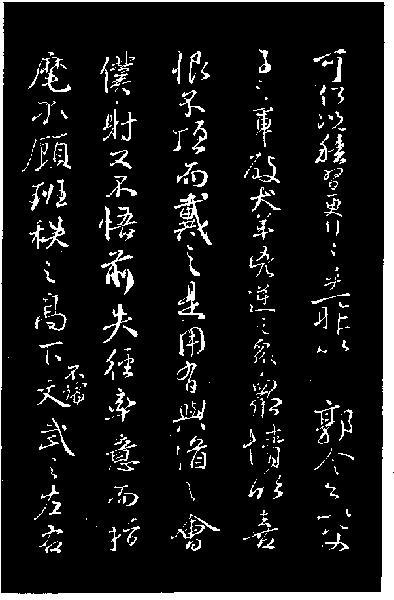 可何況積習更行之乎一昨以 郭令公以父
子之軍破犬羊兇逆之衆衆情欣喜
恨不頂而戴之是用有興道之會
僕射又不悟前失徑率意而指
麾不顧班秩之高下不論文武之左右